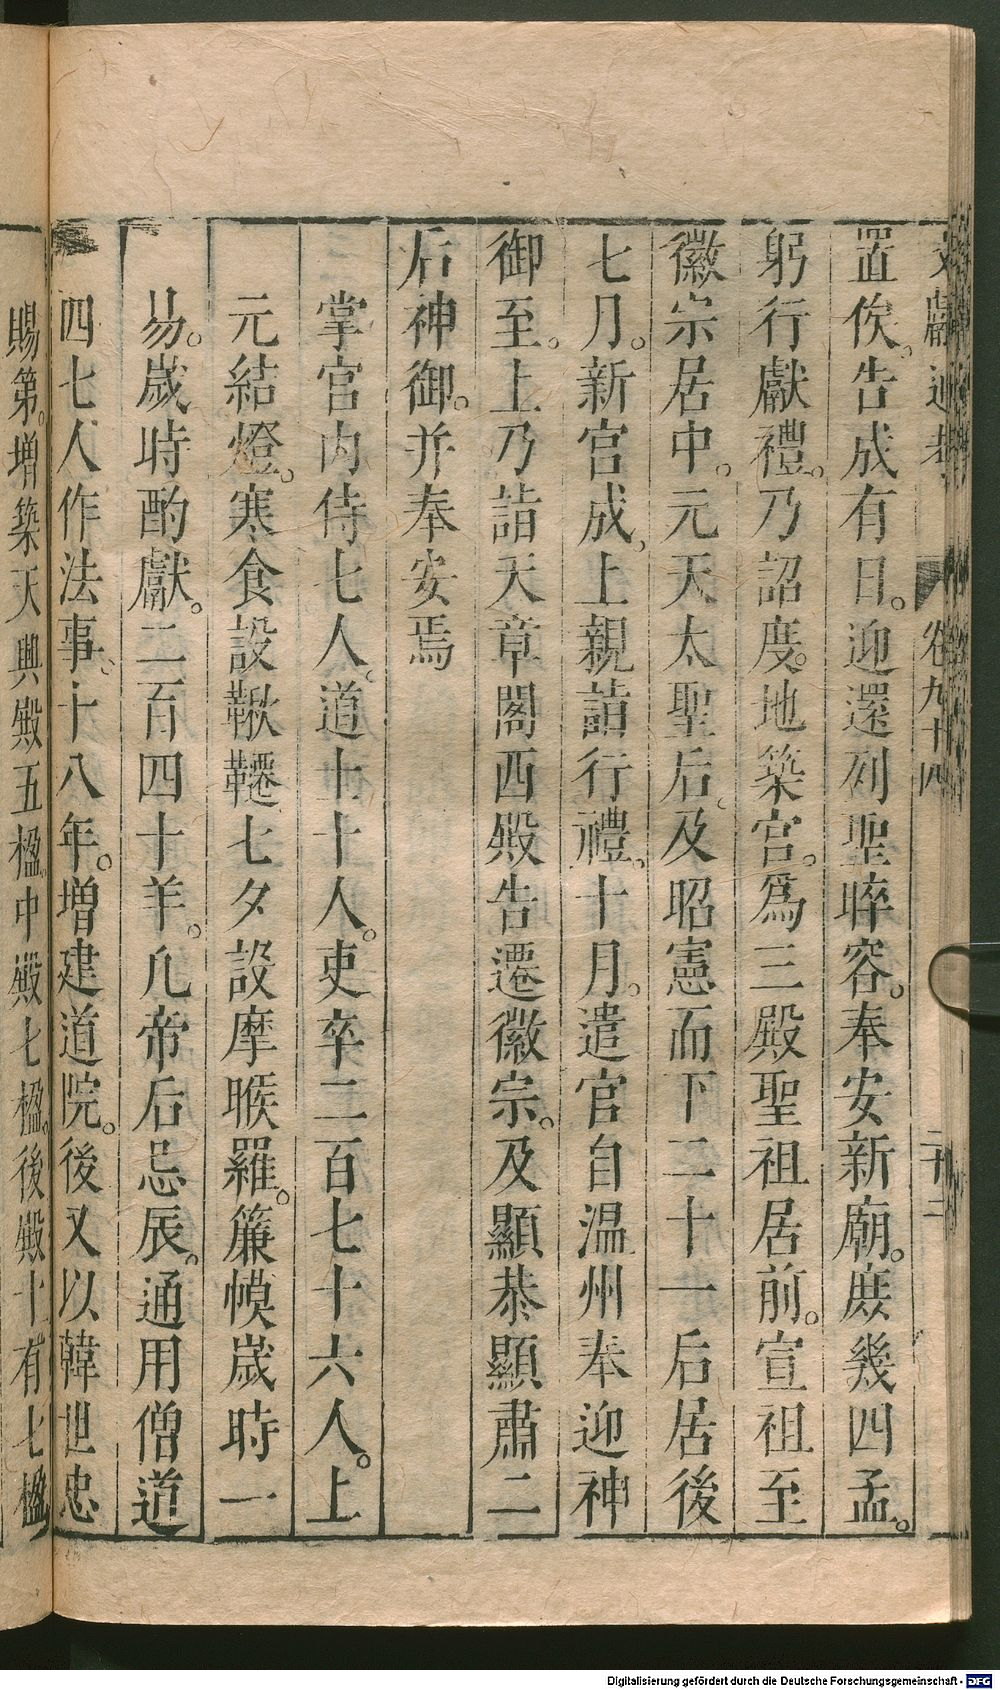 文獻通考 卷九十四 二十二
置俟告成有日。迎還列聖晬容。奉安新廟。庶幾四孟。
躬行獻禮。乃詔度地築宮。爲三殿聖祖居前。宣祖至
徽宗居中。元天太聖后。及昭憲而下二十一后居後
七月。新宮成。上親詣行禮。十月。遣官自温州奉迎神
御至。上乃詣天章閣西殿告遷徽宗。及顯恭顯肅二
后神御。并奉安焉
掌宮內侍七人。道士十人。吏卒二百七十六人。上
元結燈。寒食設鞦韆七夕設摩睺羅。簾幙歲時一
易。歲時酌獻。二百四十羊。凢帝后忌辰。通用僧道
四七人作法事。十八年。増建道院。後又以韓世忠
賜第。増築天興殿五楹。中殿七楹。後殿十有七楹
Digitalisierung gefördert durch die Deutsche Forschungsgemeinschaft - DFG